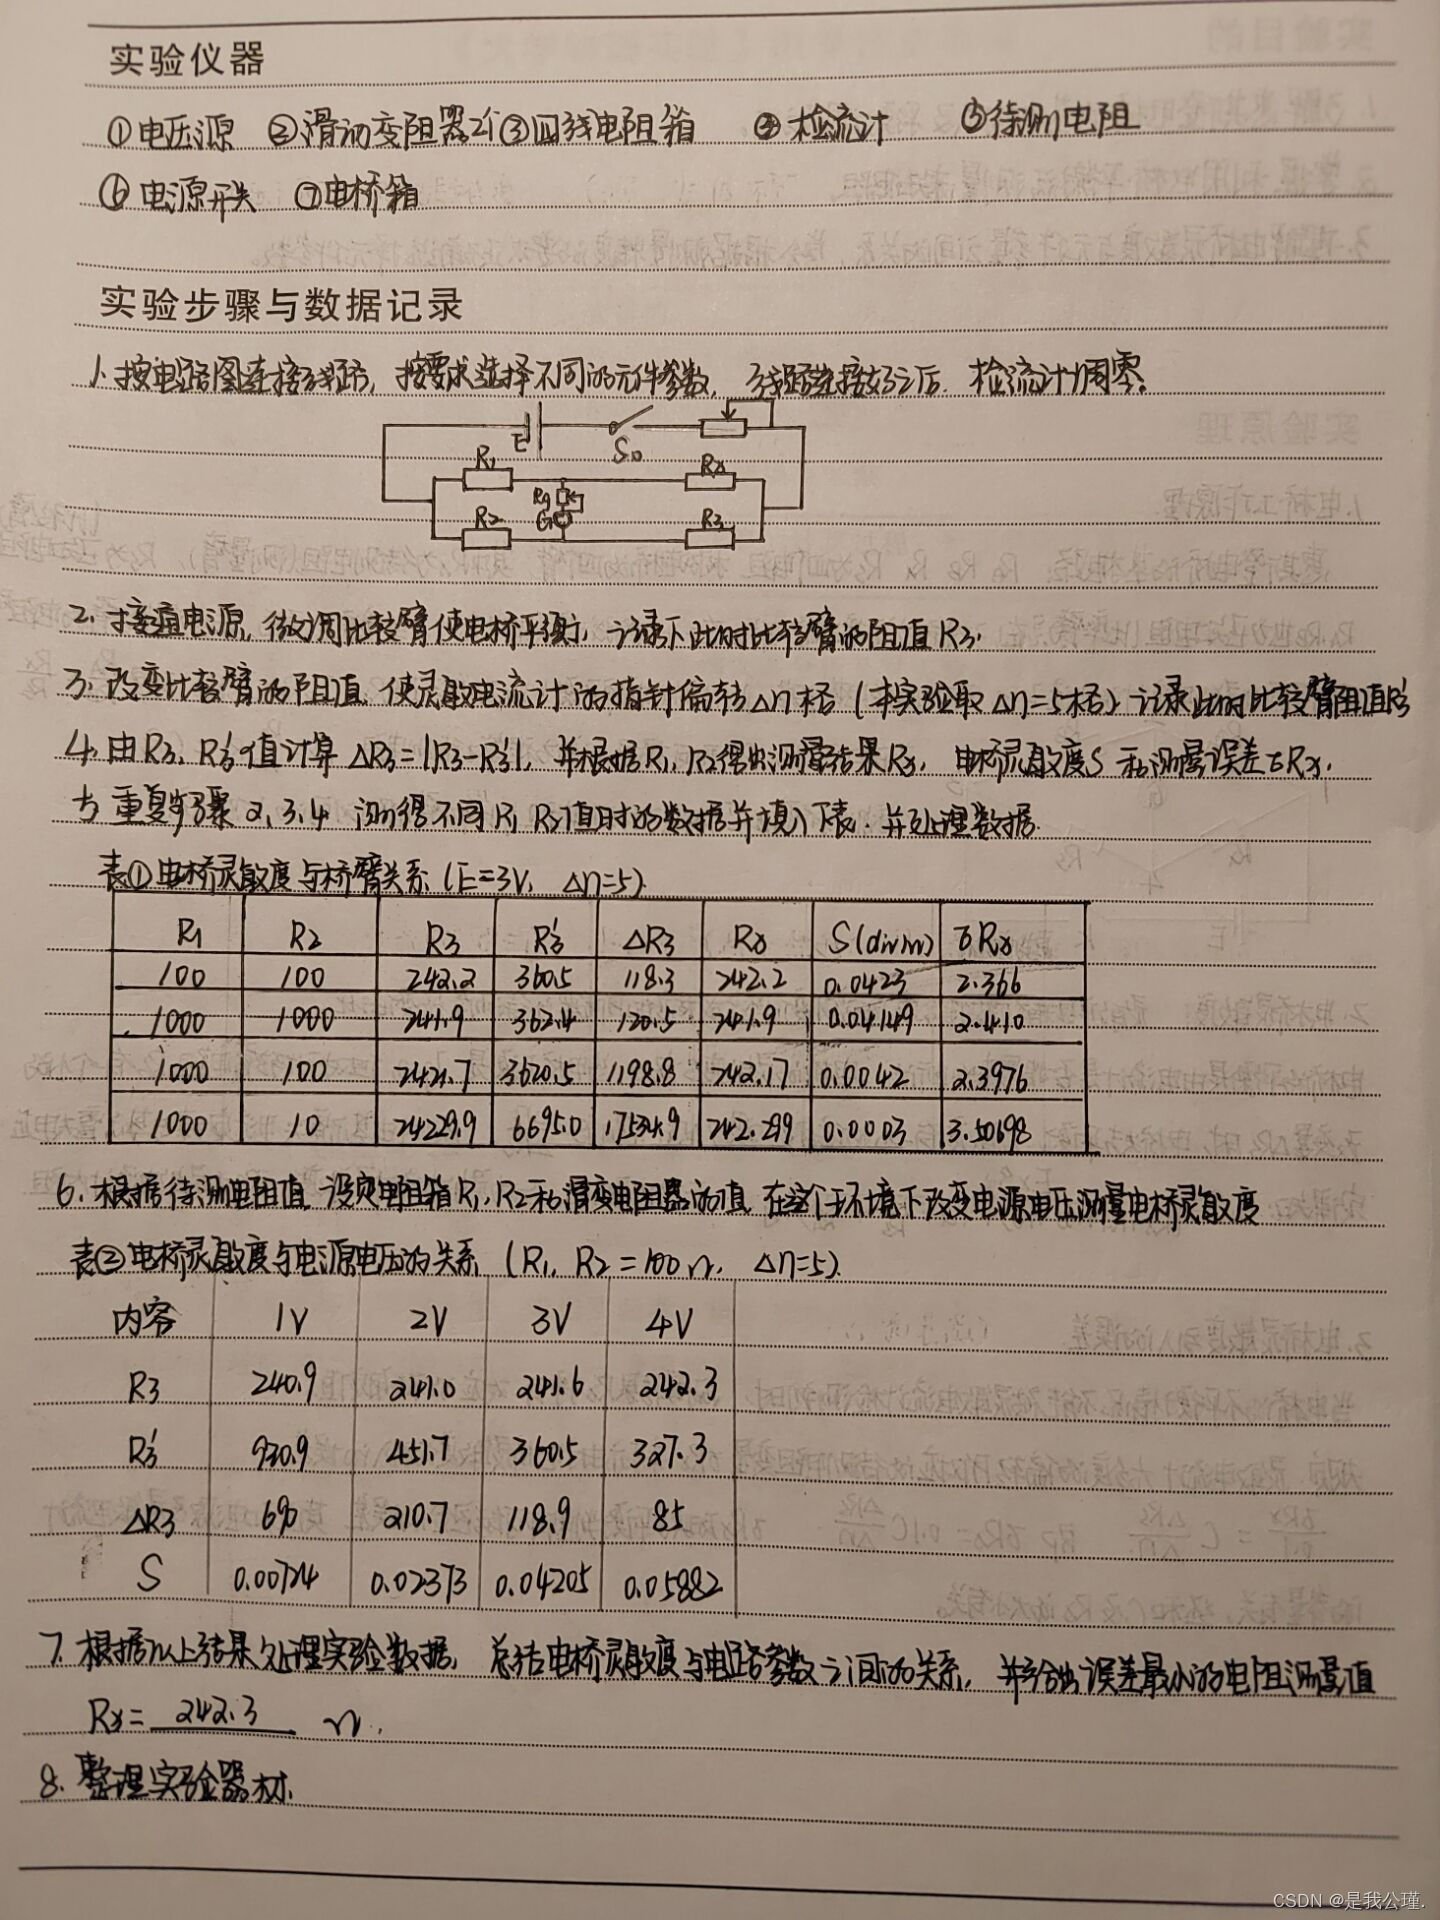 实验仪器
①电压源 ②滑动变阻器2个 ③四线电阻箱 ④检流计 ⑤待测电阻
⑥电源开关 ⑦电桥箱
实验步骤与数据记录
1.按电路图连接线路,按要求选择不同的元件参数,线路连接好之后.检流计调零。
E S0
R1 Rx
Rg
G
R2 R3
2.接通电源,微调比较臂使电桥平衡,记录下此时比较臂的阻值R3.
3.改变比较臂的阻值,使灵敏电流计的指针偏转Δn格(本实验取Δn=5格)记录此时比较臂阻值R3'
4.由R3、R3'值计算ΔR3=|R3-R3'|,并根据R1,R2得出测量结果Rx,电桥灵敏度S和测量误差δRx.
5 重复步骤2,3,4 测得不同R1 R2值时的数据并填入下表.并处理数据.
表①电桥灵敏度与桥臂关系(E=3V, Δn=5)
R1 R2 R3 R3' ΔR3 Rx S(div/n) δRx
100 100 242.2 360.5 118.3 242.2 0.0423 2.366
1000 1000 241.9 362.4 120.5 241.9 0.04149 2.410
1000 100 2421.7 3620.5 1198.8 242.17 0.0042 2.3976
1000 10 24229.9 6695.0 17534.9 242.299 0.0003 3.50698
6.根据待测电阻值,设定电阻箱R1,R2和滑变电阻器的值,在这个环境下改变电源电压测量电桥灵敏度
表②电桥灵敏度与电源电压的关系(R1, R2=100Ω, Δn=5)
内容 1V 2V 3V 4V
R3 240.9 241.0 241.6 242.3
R3' 930.9 451.7 360.5 327.3
ΔR3 690 210.7 118.9 85
S 0.00724 0.02373 0.04205 0.05882
7.根据以上结果处理实验数据,总结电桥灵敏度与电路参数之间的关系,并给出误差最小的电阻测量值
Rx=242.3 Ω.
8.整理实验器材.
CSDN @是我公瑾.